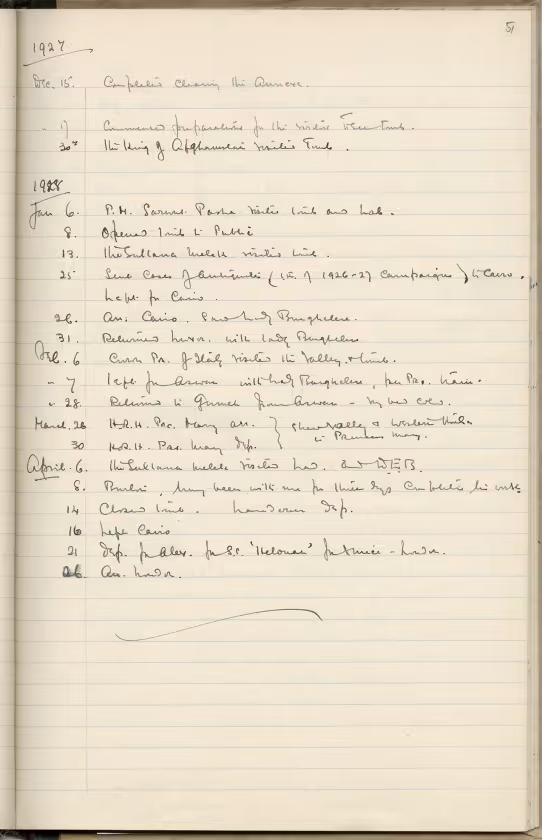 51
1927
Dec. 15. Completed clearing the Annexe.
" 17 Commenced preparations for the visitors Tomb.
30th The King of Afghanistan visited Tomb.
1928
Jan 6. P.M. Sarwat Pasha visited tomb and lab.
8. Opened tomb to Public
13. The Sultana Melek visited tomb.
25 Sent Cases of Antiquities (of 1926-27 Campaigns) to Cairo.
Left for Cairo.
26. Arr. Cairo. Saw Lady Burghclere.
31. Returned Luxor. with Lady Burghclere
Feb. 6 Crown Pr. of Italy visited the Valley & tomb.
" 7 Left for Aswan with Lady Burghclere, train.
" 28. Returned to Gurna from Aswan -
March. 26 H.R.H. Pss. Mary arr. } Valley &
30 H.R.H. Pss. Mary dep. } to Princess Mary.
April. 6. The Sultana Melek visited
8. Burton, having been with me for three days Completed his work
14 Closed tomb. dep.
16 Left Cairo
21 Dep. for Alex. for S.S. 'Helouan' for Venice - London.
26. Arr. London.